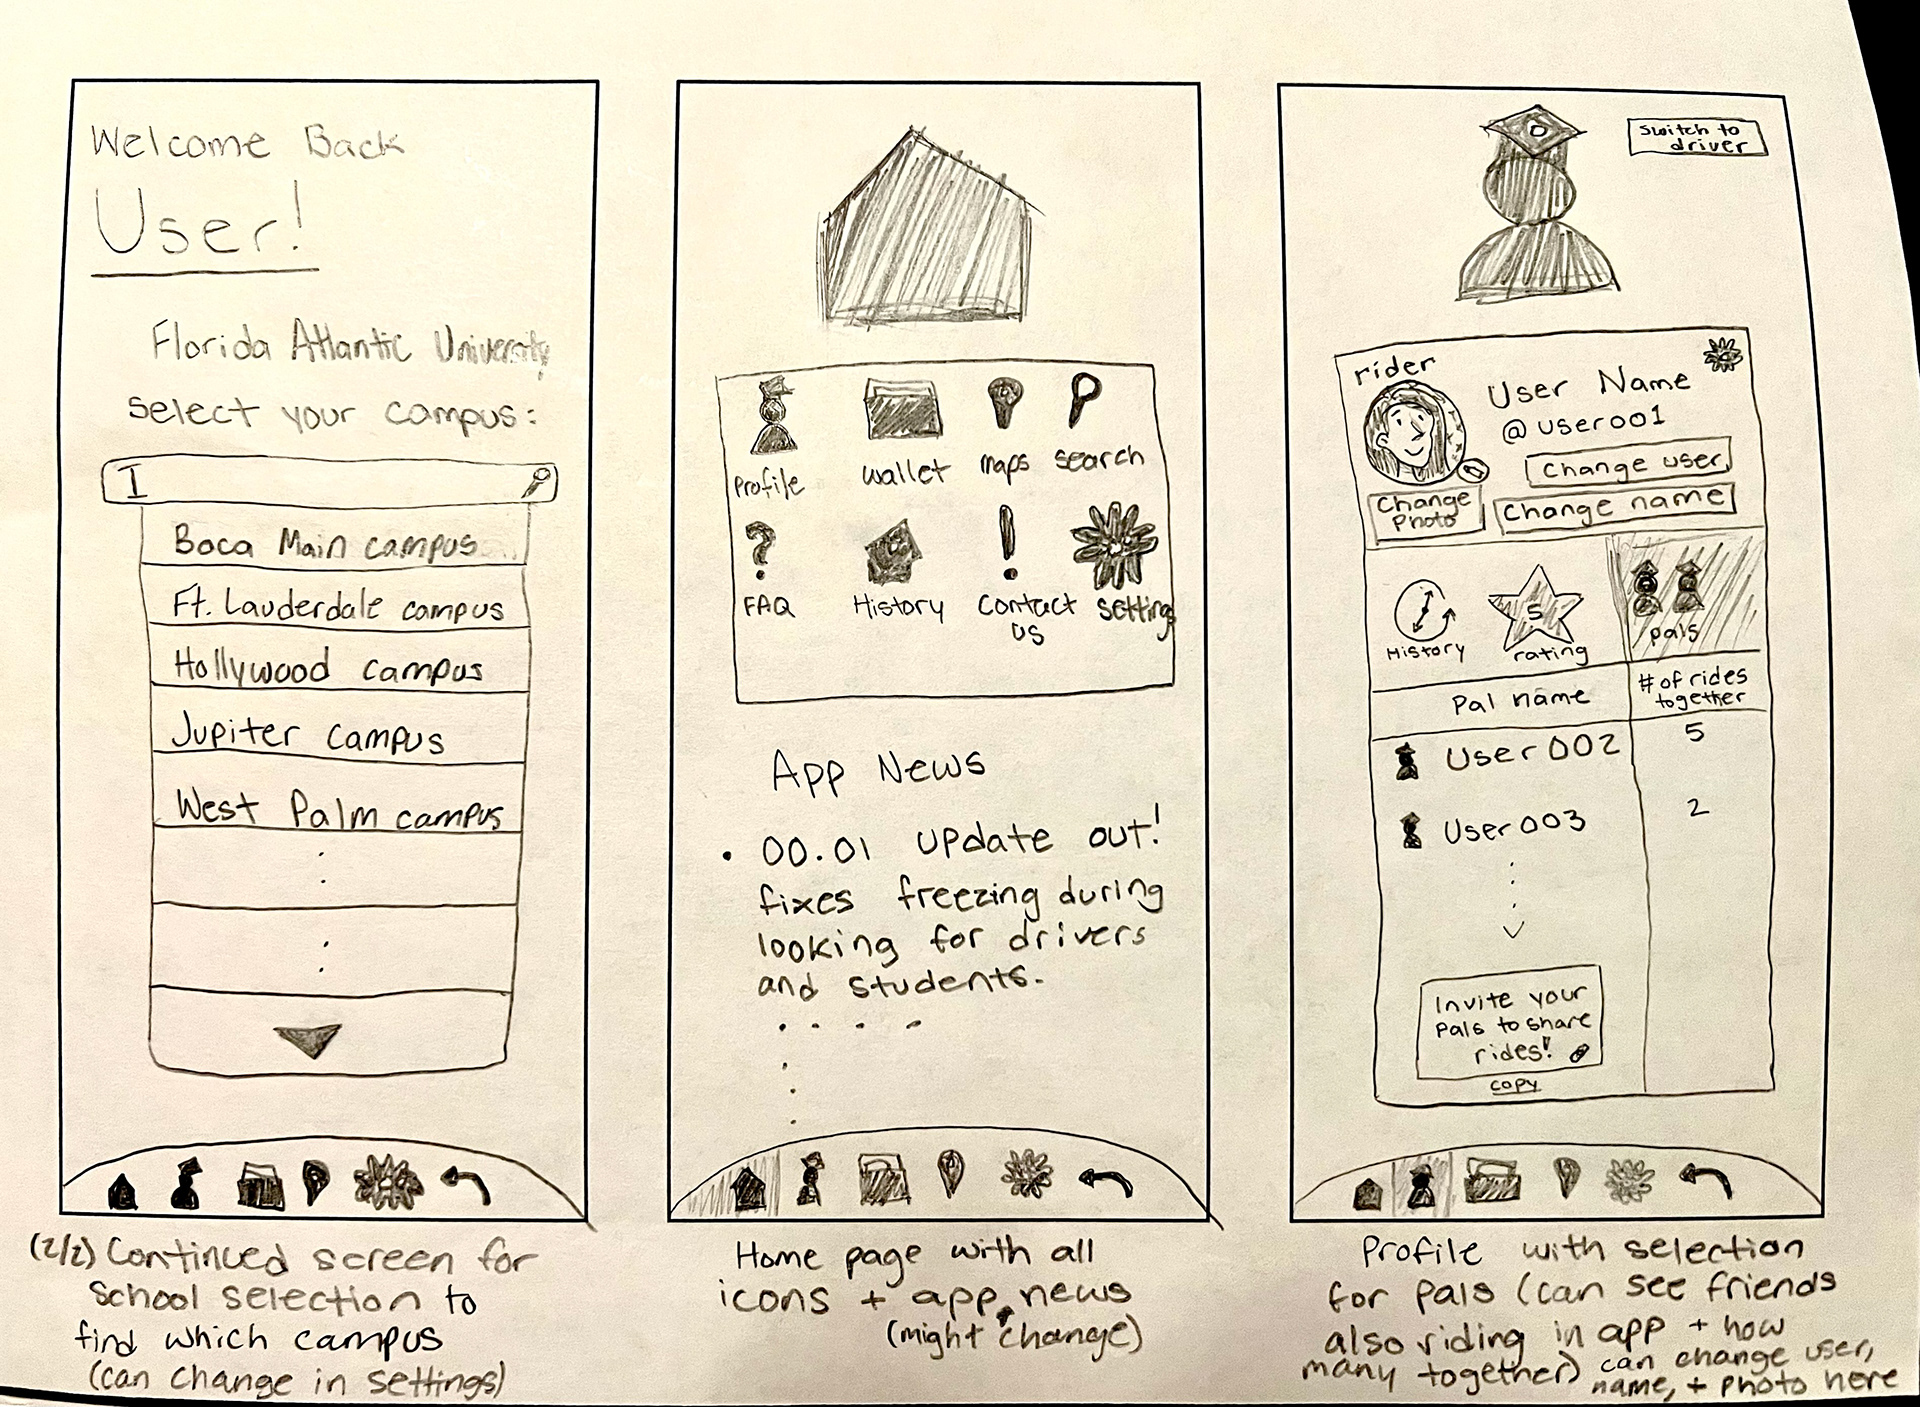 Welcome Back
User!
Florida Atlantic University
select your campus:
I
Boca Main campus
Ft. Lauderdale campus
Hollywood campus
Jupiter campus
West Palm campus
(2/2) Continued screen for
school selection to
find which campus
(can change in settings)
Profile
wallet
maps
search
?
!
FAQ
History
Contact
us
settings
App News
• 00.01 update out!
fixes freezing during
looking for drivers
and students.
Home page with all
icons + app news
(might change)
switch to
driver
rider
User Name
@user001
Change user
Change
Photo
Change name
5
History
rating
pals
Pal name
# of rides
together
User 002
5
User 003
2
Invite your
pals to share
rides!
copy
Profile with selection
for pals (can see friends
also riding in app + how
many together) can change user,
name, + photo here